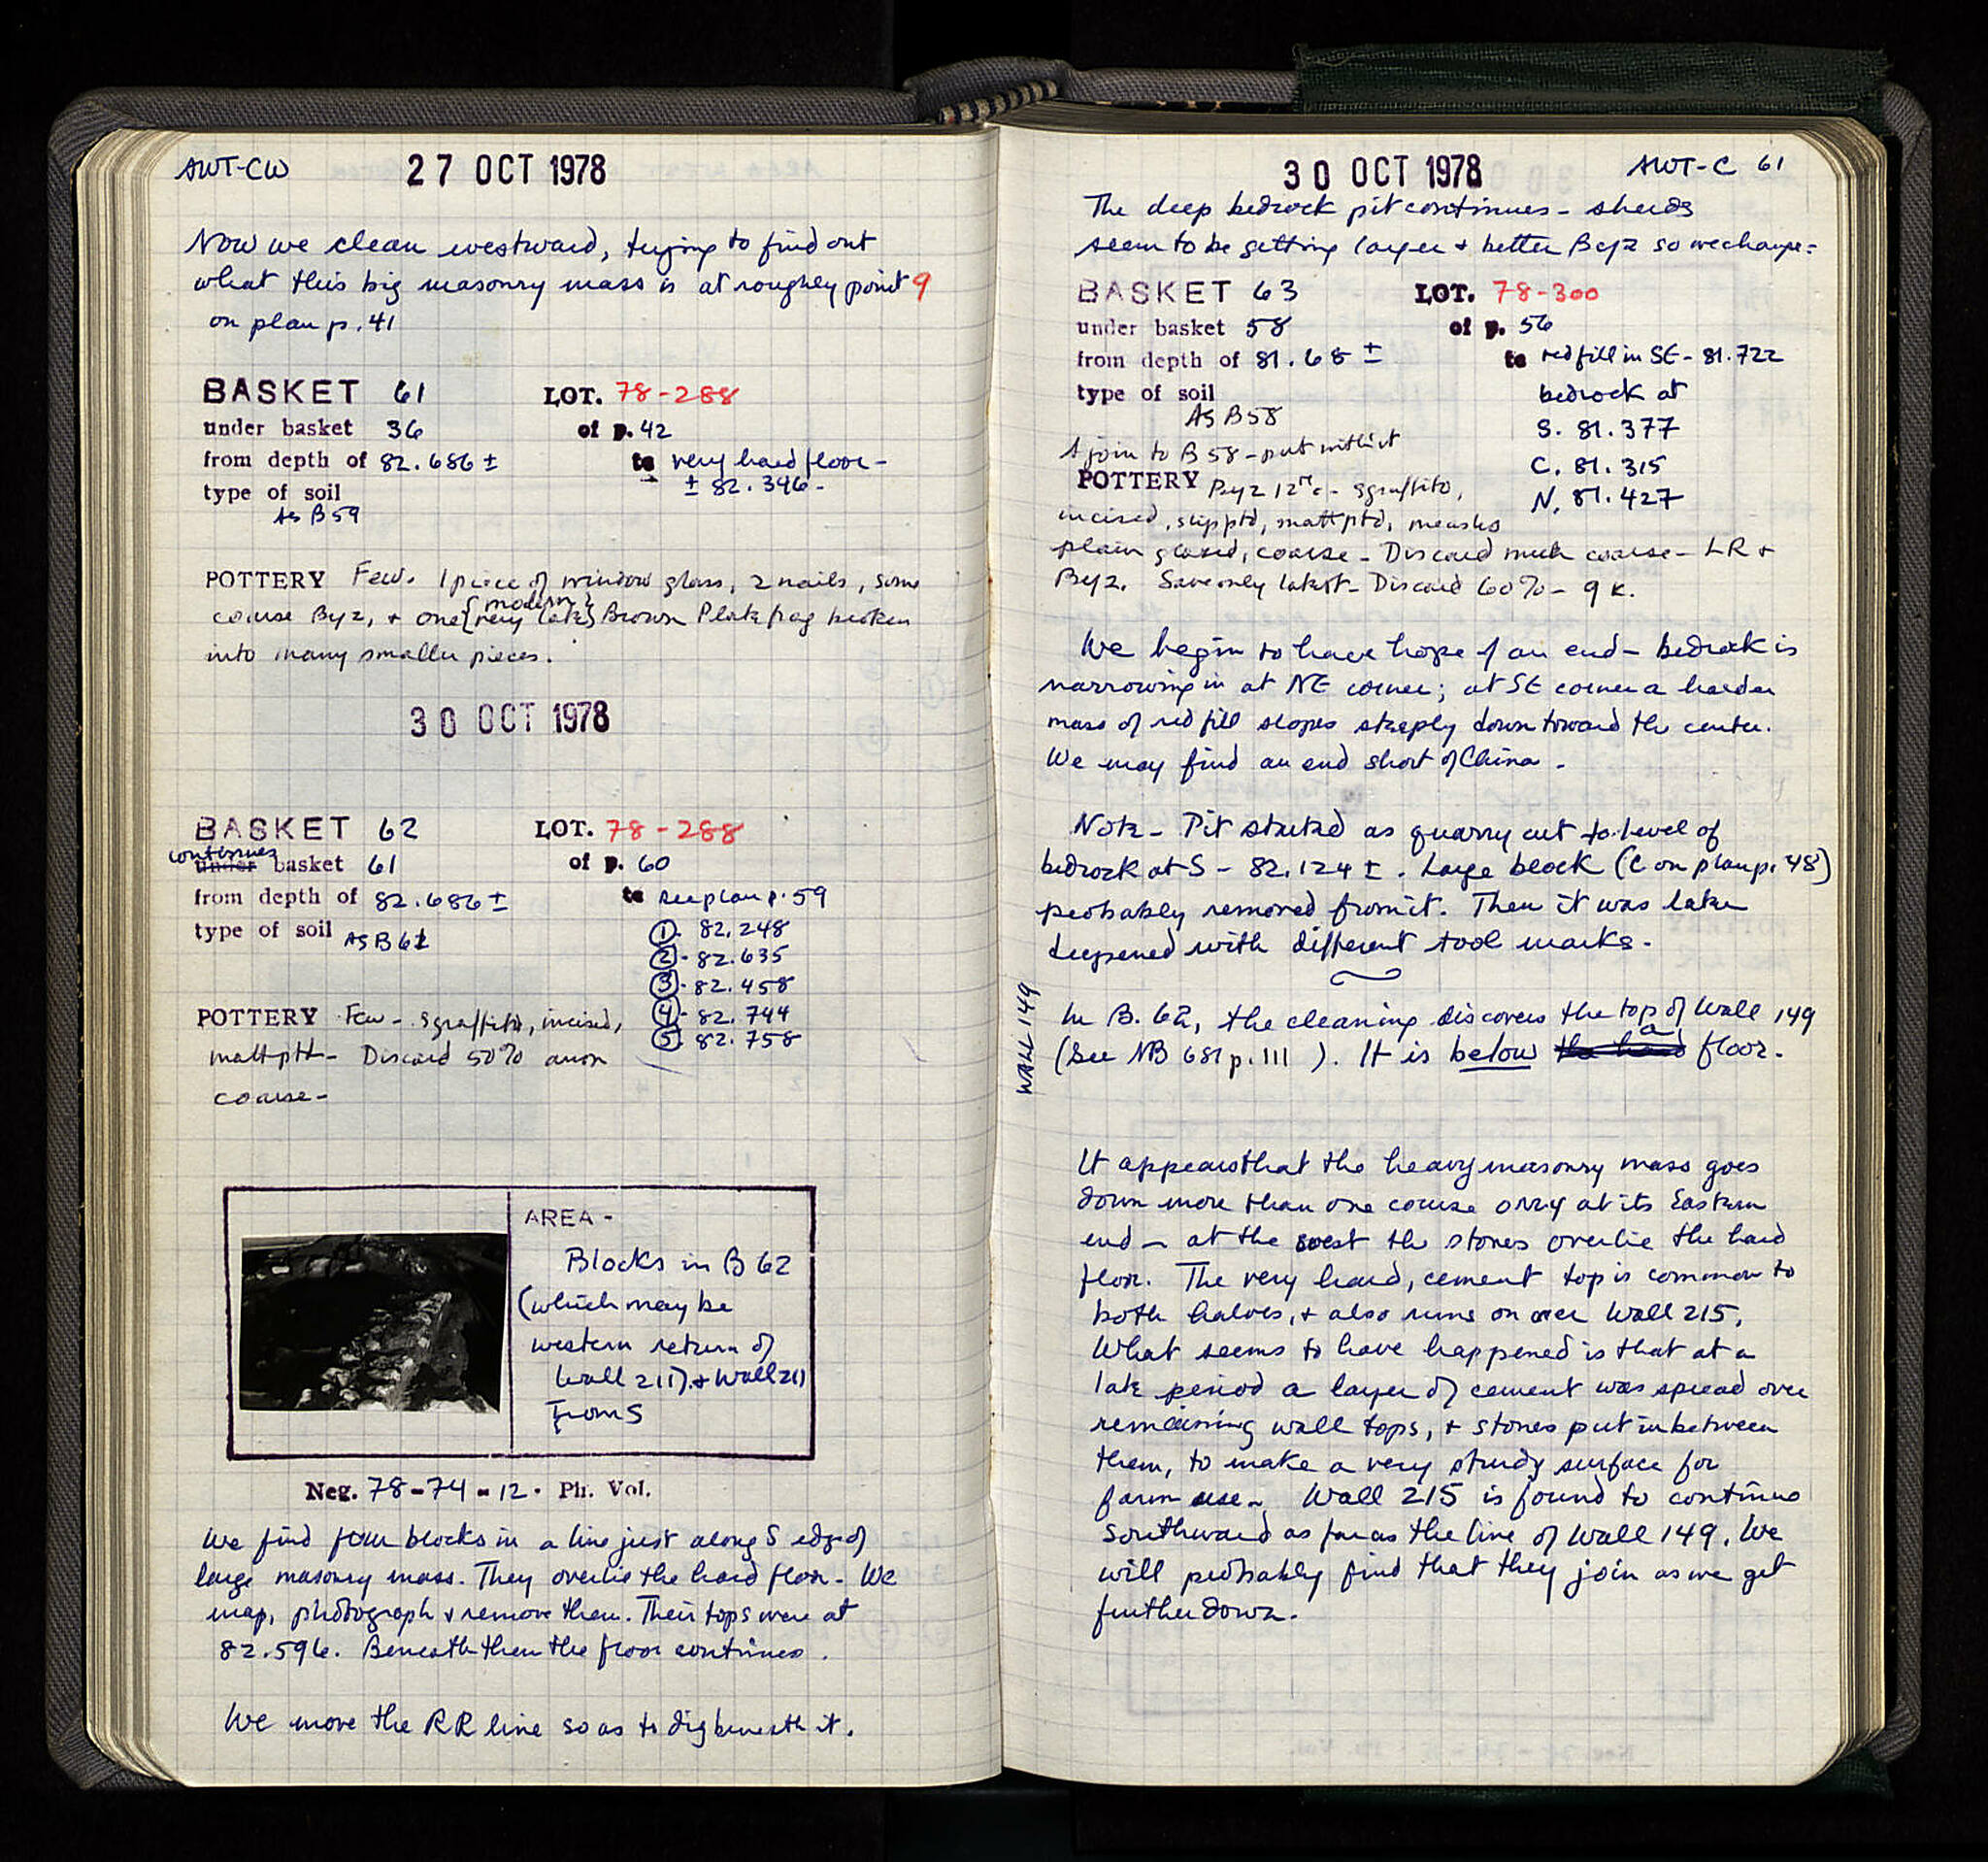 AWT-CW
27 OCT 1978
Now we clean westward, trying to find out
what this big masonry mass is at roughly point 9
on plan p. 41
BASKET 61 LOT. 78-288
under basket 36 of p. 42
from depth of 82.686 ± to very hard floor -
± 82.396 -
type of soil
As B59
POTTERY Few. 1 piece of window glass, 2 nails, some
coarse Byz, + one {modern / very late} Brown Plate frag broken
into many smaller pieces.
30 OCT 1978
BASKET 62 LOT. 78-288
continues
under basket 61 of p. 60
from depth of 82.686 ± to see plan p. 59
type of soil As B 61
① 82.248
② - 82.635
③ - 82.458
④ - 82.744
⑤ 82.758
POTTERY Few - Sgraffito, incised,
matt ptt - Discard 50%
coarse -
AREA -
Blocks in B 62
(which may be
western return of
Wall 211) + Wall 211
From S
Neg. 78-74-12. Ph. Vol.
We find four blocks in a line just along S edge of
large masonry mass. They overlie the hard floor - We
map, photograph & remove them. Their tops were at
82.596. Beneath them the floor continues.
We move the RR line so as to dig beneath it.
30 OCT 1978
AWT-C 61
The deep bedrock pit continues - sherds
seem to be getting larger + better Byz so we change:
BASKET 63 LOT. 78-300
under basket 58 of p. 56
from depth of 81.68 ± to red fill in SE - 81.722
type of soil
As B58
bedrock at
S. 81.377
C. 81.315
N. 81.427
A join to B 58 - put with it
POTTERY Byz 12th c - sgraffito,
incised, slip ptd, matt ptd, measles
plain glazed, coarse - Discard much coarse - LR +
Byz. Save only latest - Discard 60% - 9 k.
We begin to have hope of an end - bedrock is
narrowing in at NE corner; at SE corner a harder
mass of red fill slopes steeply down toward the center.
We may find an end short of China -
Note - Pit started as quarry cut to level of
bedrock at S - 82.124 ±. Large block (C on plan p. 48)
probably removed from it. Then it was later
deepened with different tool marks -
WALL 149
In B. 62, the cleaning discovers the top of Wall 149
(See NB 681 p. 111 ). It is below the hard a floor.
It appears that the heavy masonry mass goes
down more than one course only at its Eastern
end - at the west the stones overlie the hard
floor. The very hard, cement top is common to
both halves, + also runs on over Wall 215.
What seems to have happened is that at a
late period a layer of cement was spread over
remaining wall tops, + stones put in between
them, to make a very sturdy surface for
farm use - Wall 215 is found to continue
Southward as far as the line of Wall 149. We
will probably find that they join as we get
further down.